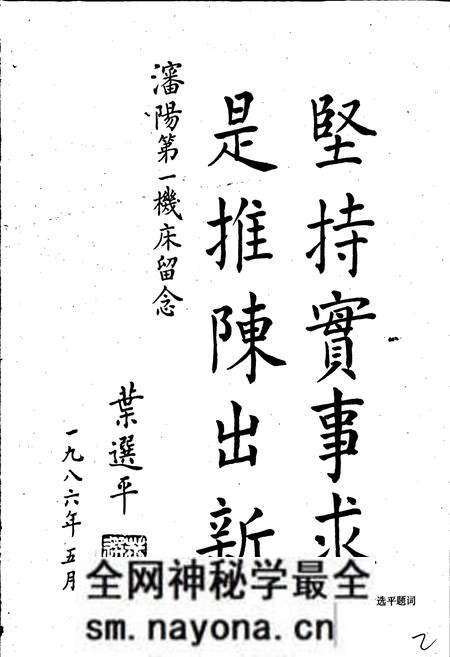 堅持實事求
是推陳出新
瀋陽第一機床留念
葉選平
一九八六年五月
选平题词
全网神秘学最全
sm.nayona.cn